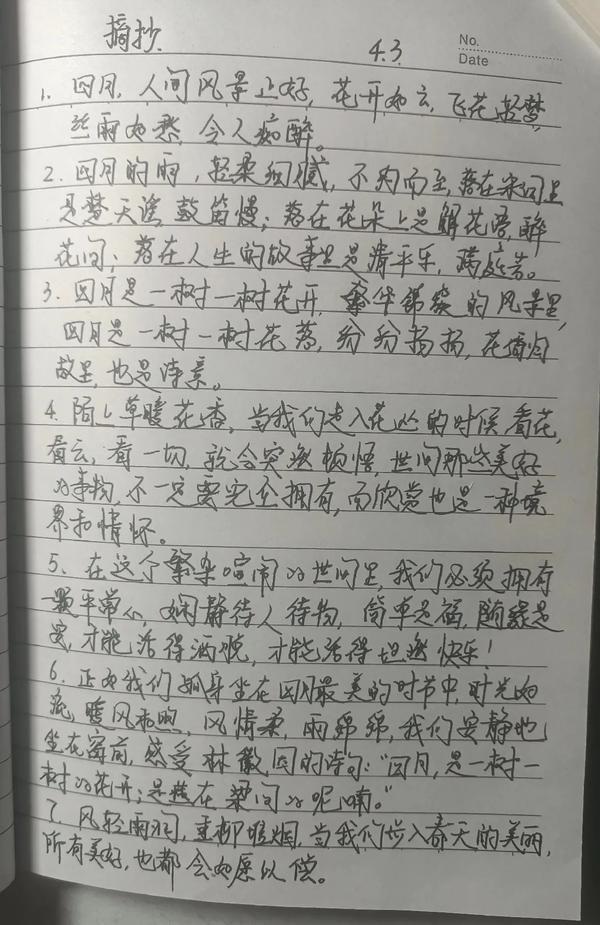 摘抄
4.3
No.
Date
1. 四月,人间风景正好,花开如云,飞花轻梦,
丝雨如愁,令人痴醉。
2. 四月的雨,轻柔细腻,不约而至,落在宋词里
是梦天遥,鼓笛慢;落在花朵上是解花语,醉
花间;落在人生的故事里是清平乐,满庭芳。
3. 四月是一树一树花开,繁华锦簇的风景里,
四月是一树一树花落,纷纷扬扬,花倚
故里,也是诗意。
4. 陌上草暖花香,当我们走入花丛的时候看花,
看云,看一切,就会突然顿悟,世间那些美好
的事物,不一定要完全拥有,而欣赏也是一种境
界和情怀。
5. 在这个繁杂喧闹的世间里,我们必须拥有
一颗平常心,娴静待人待物,简单是福,随缘是
安,才能活得洒脱,才能活得坦然快乐!
6. 正如我们孤身坐在四月最美的时节中,时光如
流,暖风和煦,风情柔,雨绵绵,我们安静地
坐在窗前,感受林徽因的诗句:“四月,是一树一
树的花开;是燕在梁间的呢喃。”
7. 风轻雨润,垂柳堆烟,当我们步入春天的美丽,
所有美好,也都会如愿以偿。